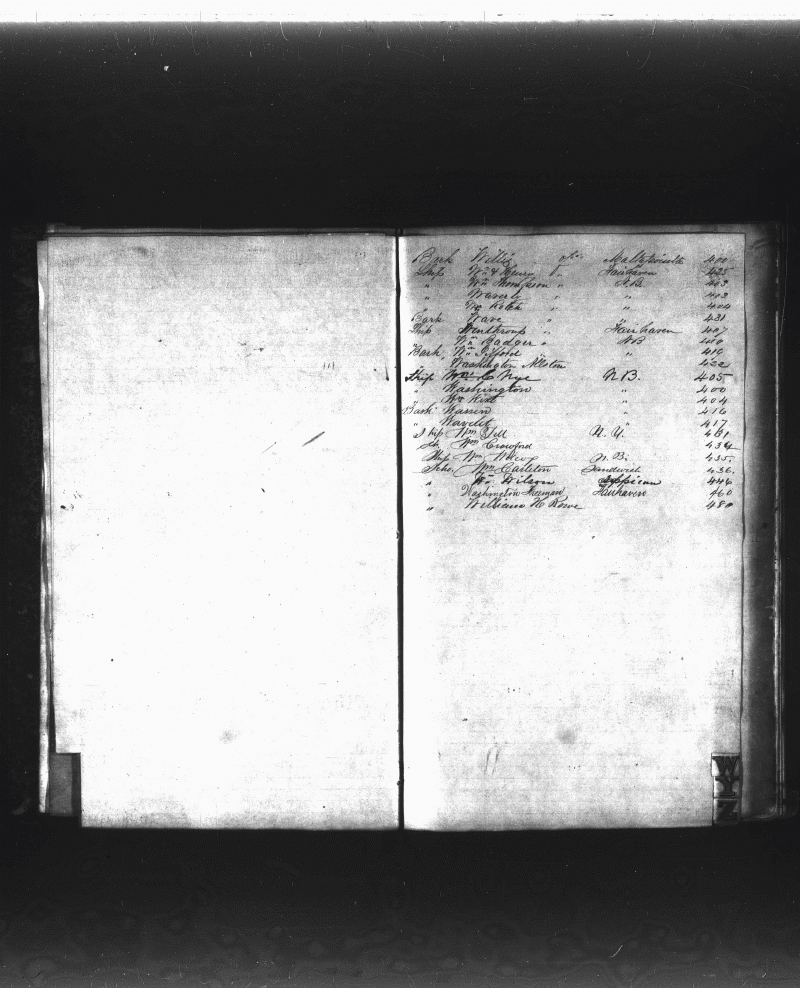 Bark Willis of Mattapoisett 400
Ship Wm & Henry " Fairhaven 425
" Wm Thompson " N.B. 403
" Waverly " " 403
" Wm Rotch " " 404
Bark Wave " " 431
Ship Winthrop " Fairhaven 407
" Wm Badger " NB 400
Bark, Wm Gifford " 410
" Washington Allston 422
Ship Wm C Nye N.B. 405
" Washington " 400
" Wm " 404
Bark Warren " 416
" Wavelet " 417
Ship Wm Tell N. Y. 431
Wm Crawford 434
Ship Wm Wilcox N. B. 435.
Scho. Wm Carleton Sandwich 436.
" Wm Wilson Sippican 446
" Washington Freeman Fairhaven 460
" William H Rowe 480
WYZ